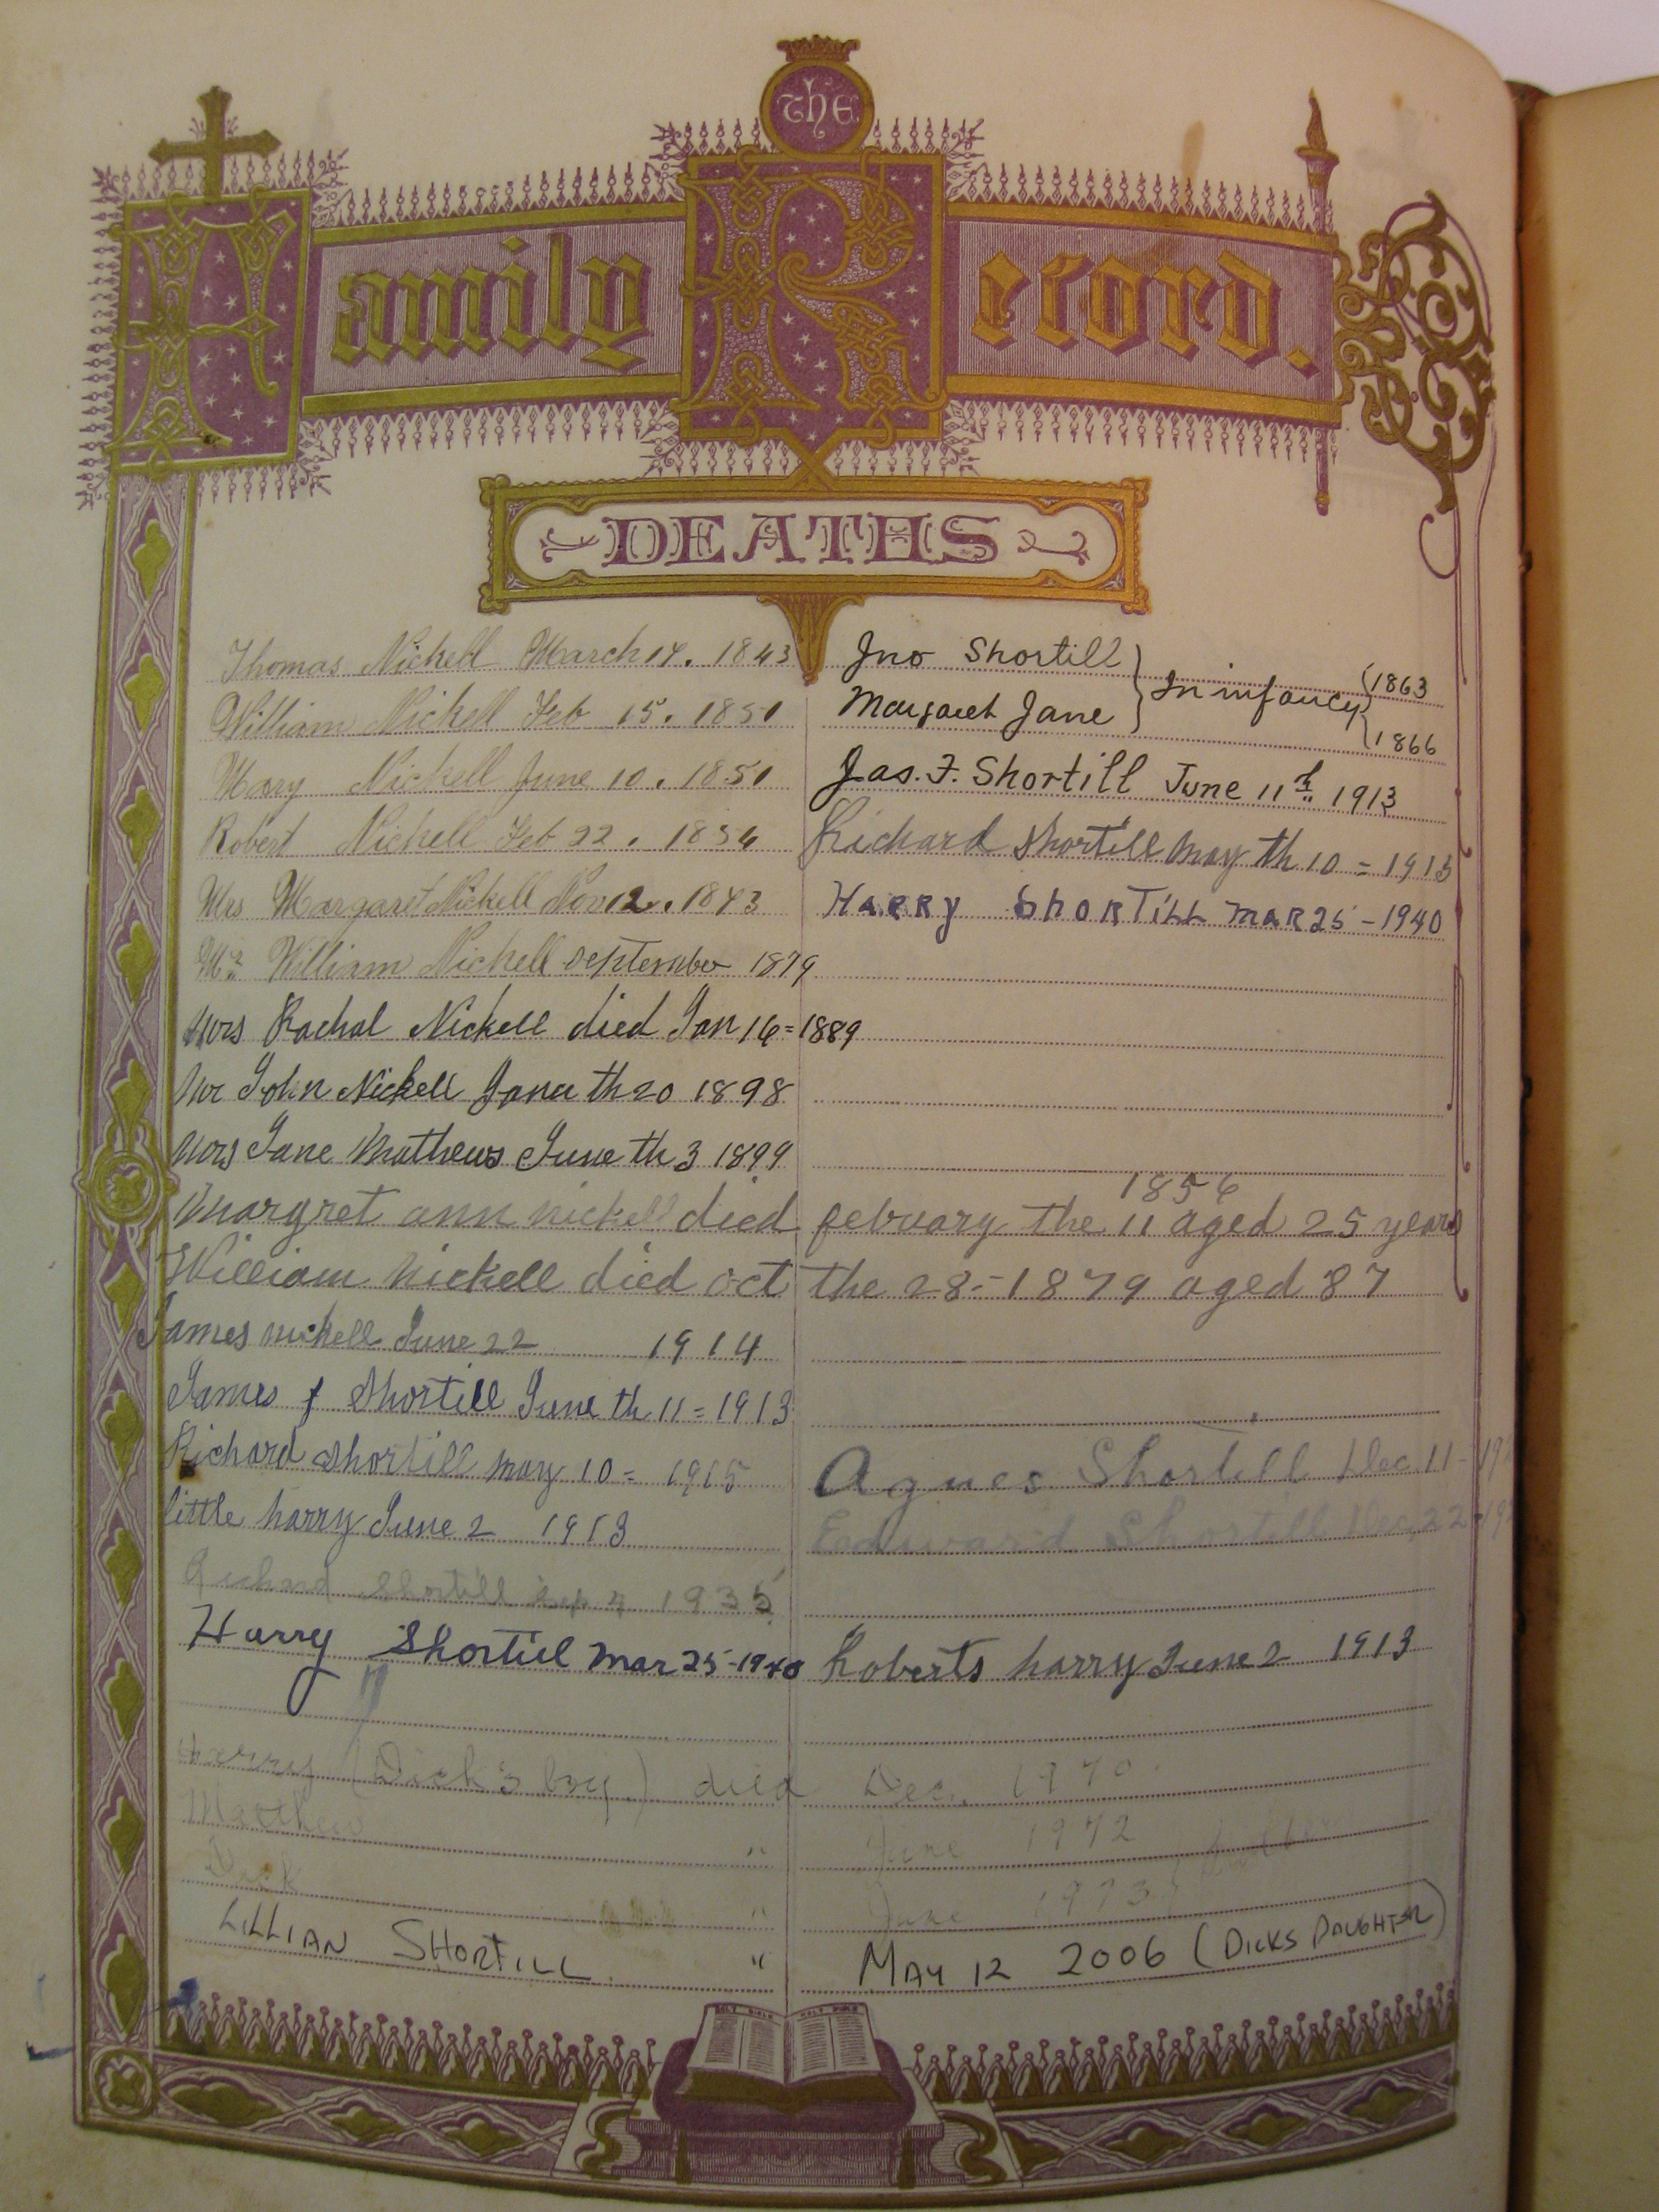 The
Family Record.
DEATHS
Thomas Nickell March 14. 1843
William Nickell Feb 15. 1851
Mary Nickell June 10. 1851
Robert Nickell Feb 22. 1854
Mrs Margaret Nickell Nov 12. 1843
Mr William Nickell september 1879
Mrs Rachal Nickell died Jan 16=1889
Mr John Nickell th 20 1898
Mrs Jane Mathews June th 3 1899
Jno Shortill } In infancy { 1863
Margaret Jane } { 1866
Jas. F. Shortill June 11th 1913
Richard Shortill may th 10 = 1915
HARRY ShORTiLL MAR 25 - 1940
1856
Margret ann nickell died febuary the 11 aged 25 years
William Nickell died oct the 28-1879 aged 87
James nickell June 22 1914
James f Shortill June th 11=1913
Richard Shortill may 10= 1915
little harry June 2 1913
Richard Shortill Sep 1935
Harry Shortill Mar 25-1940
Agnes Shortill Dec 11-
Edward Shortill Dec 22
Roberts harry June 2 1913
Harry (Dick's boy) died Dec. 1970.
Matthew " June 1972
Jack " June 1973
LILLIAN SHORTILL " MAY 12 2006 (DICKS DAUGHTER)
HOLY BIBLE HOLY BIBLE